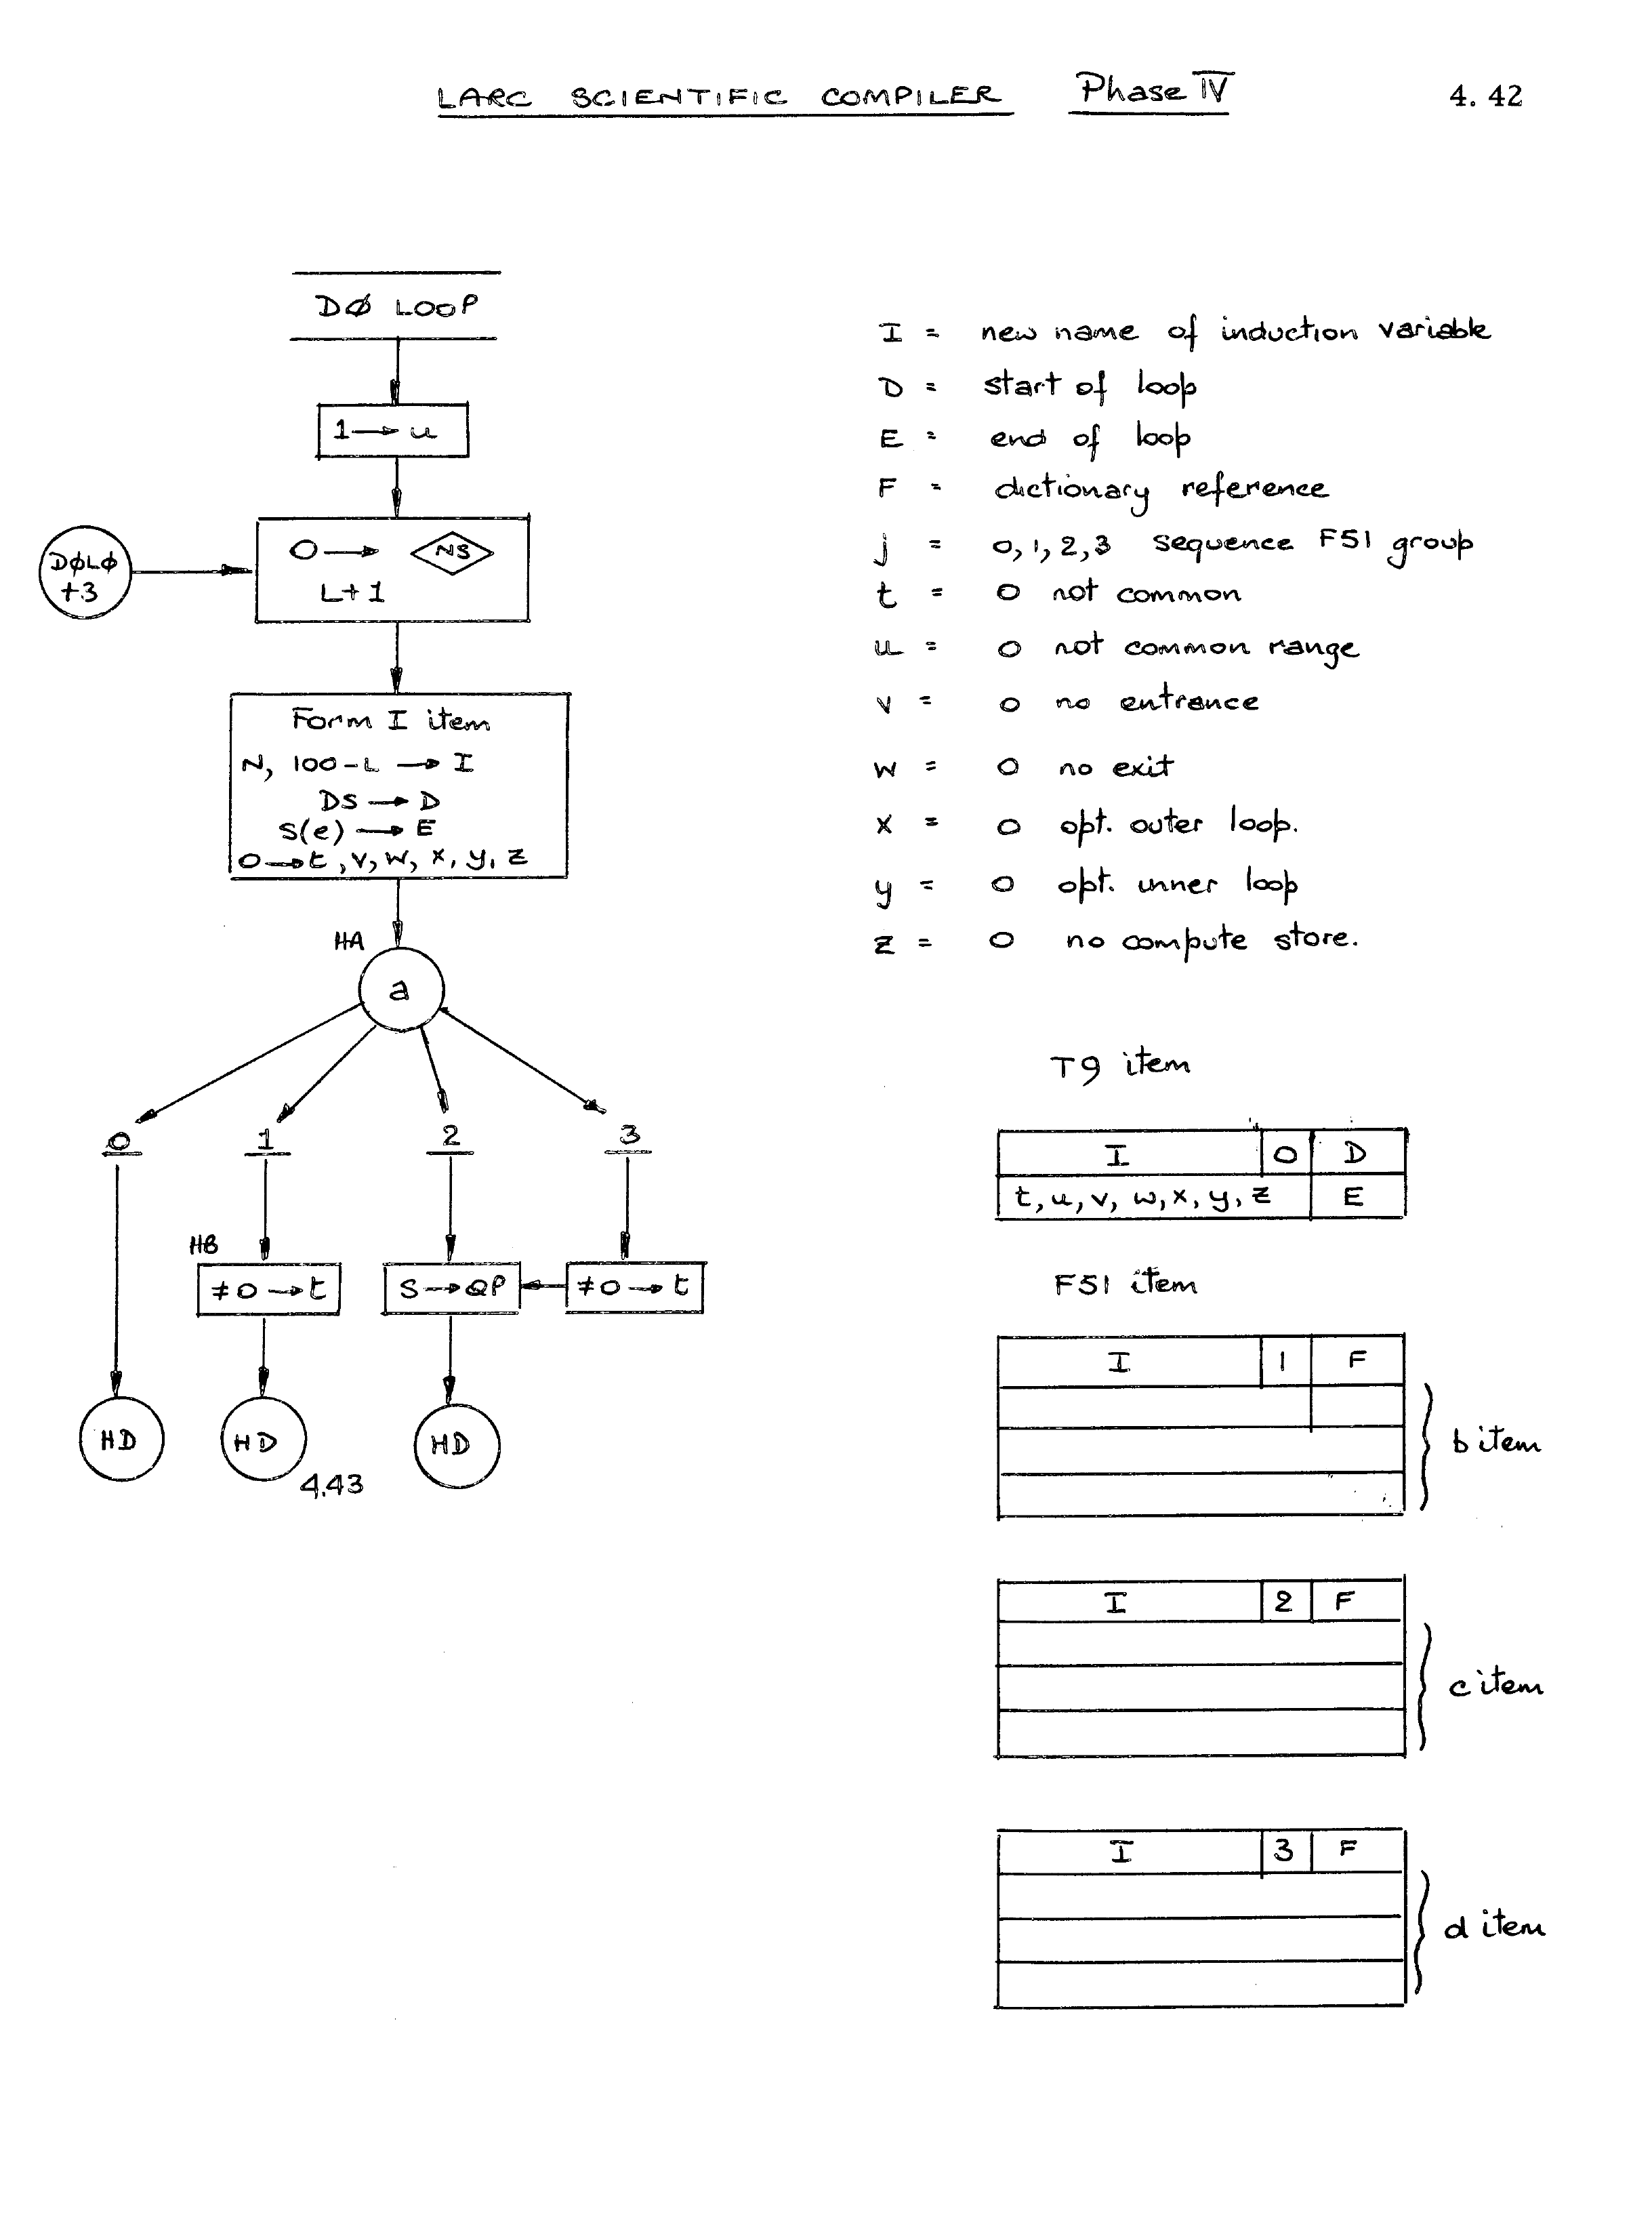 LARC SCIENTIFIC COMPILER Phase IV 4.42
DØ LOOP
1 → u
DØLØ
+3
0 → NS
L+1
Form I item
N, 100-L → I
DS → D
S(e) → E
0 → t, v, w, x, y, z
HA
a
0 1 2 3
HB
≠0 → t
S → QP
≠0 → t
HD
HD
HD
4.43
I = new name of induction variable
D = start of loop
E = end of loop
F = dictionary reference
j = 0,1,2,3 sequence F51 group
t = 0 not common
u = 0 not common range
v = 0 no entrance
w = 0 no exit
x = 0 opt. outer loop.
y = 0 opt. inner loop
z = 0 no compute store.
T9 item
I 0 D
t, u, v, w, x, y, z E
F51 item
I 1 F
b item
I 2 F
c item
I 3 F
d item